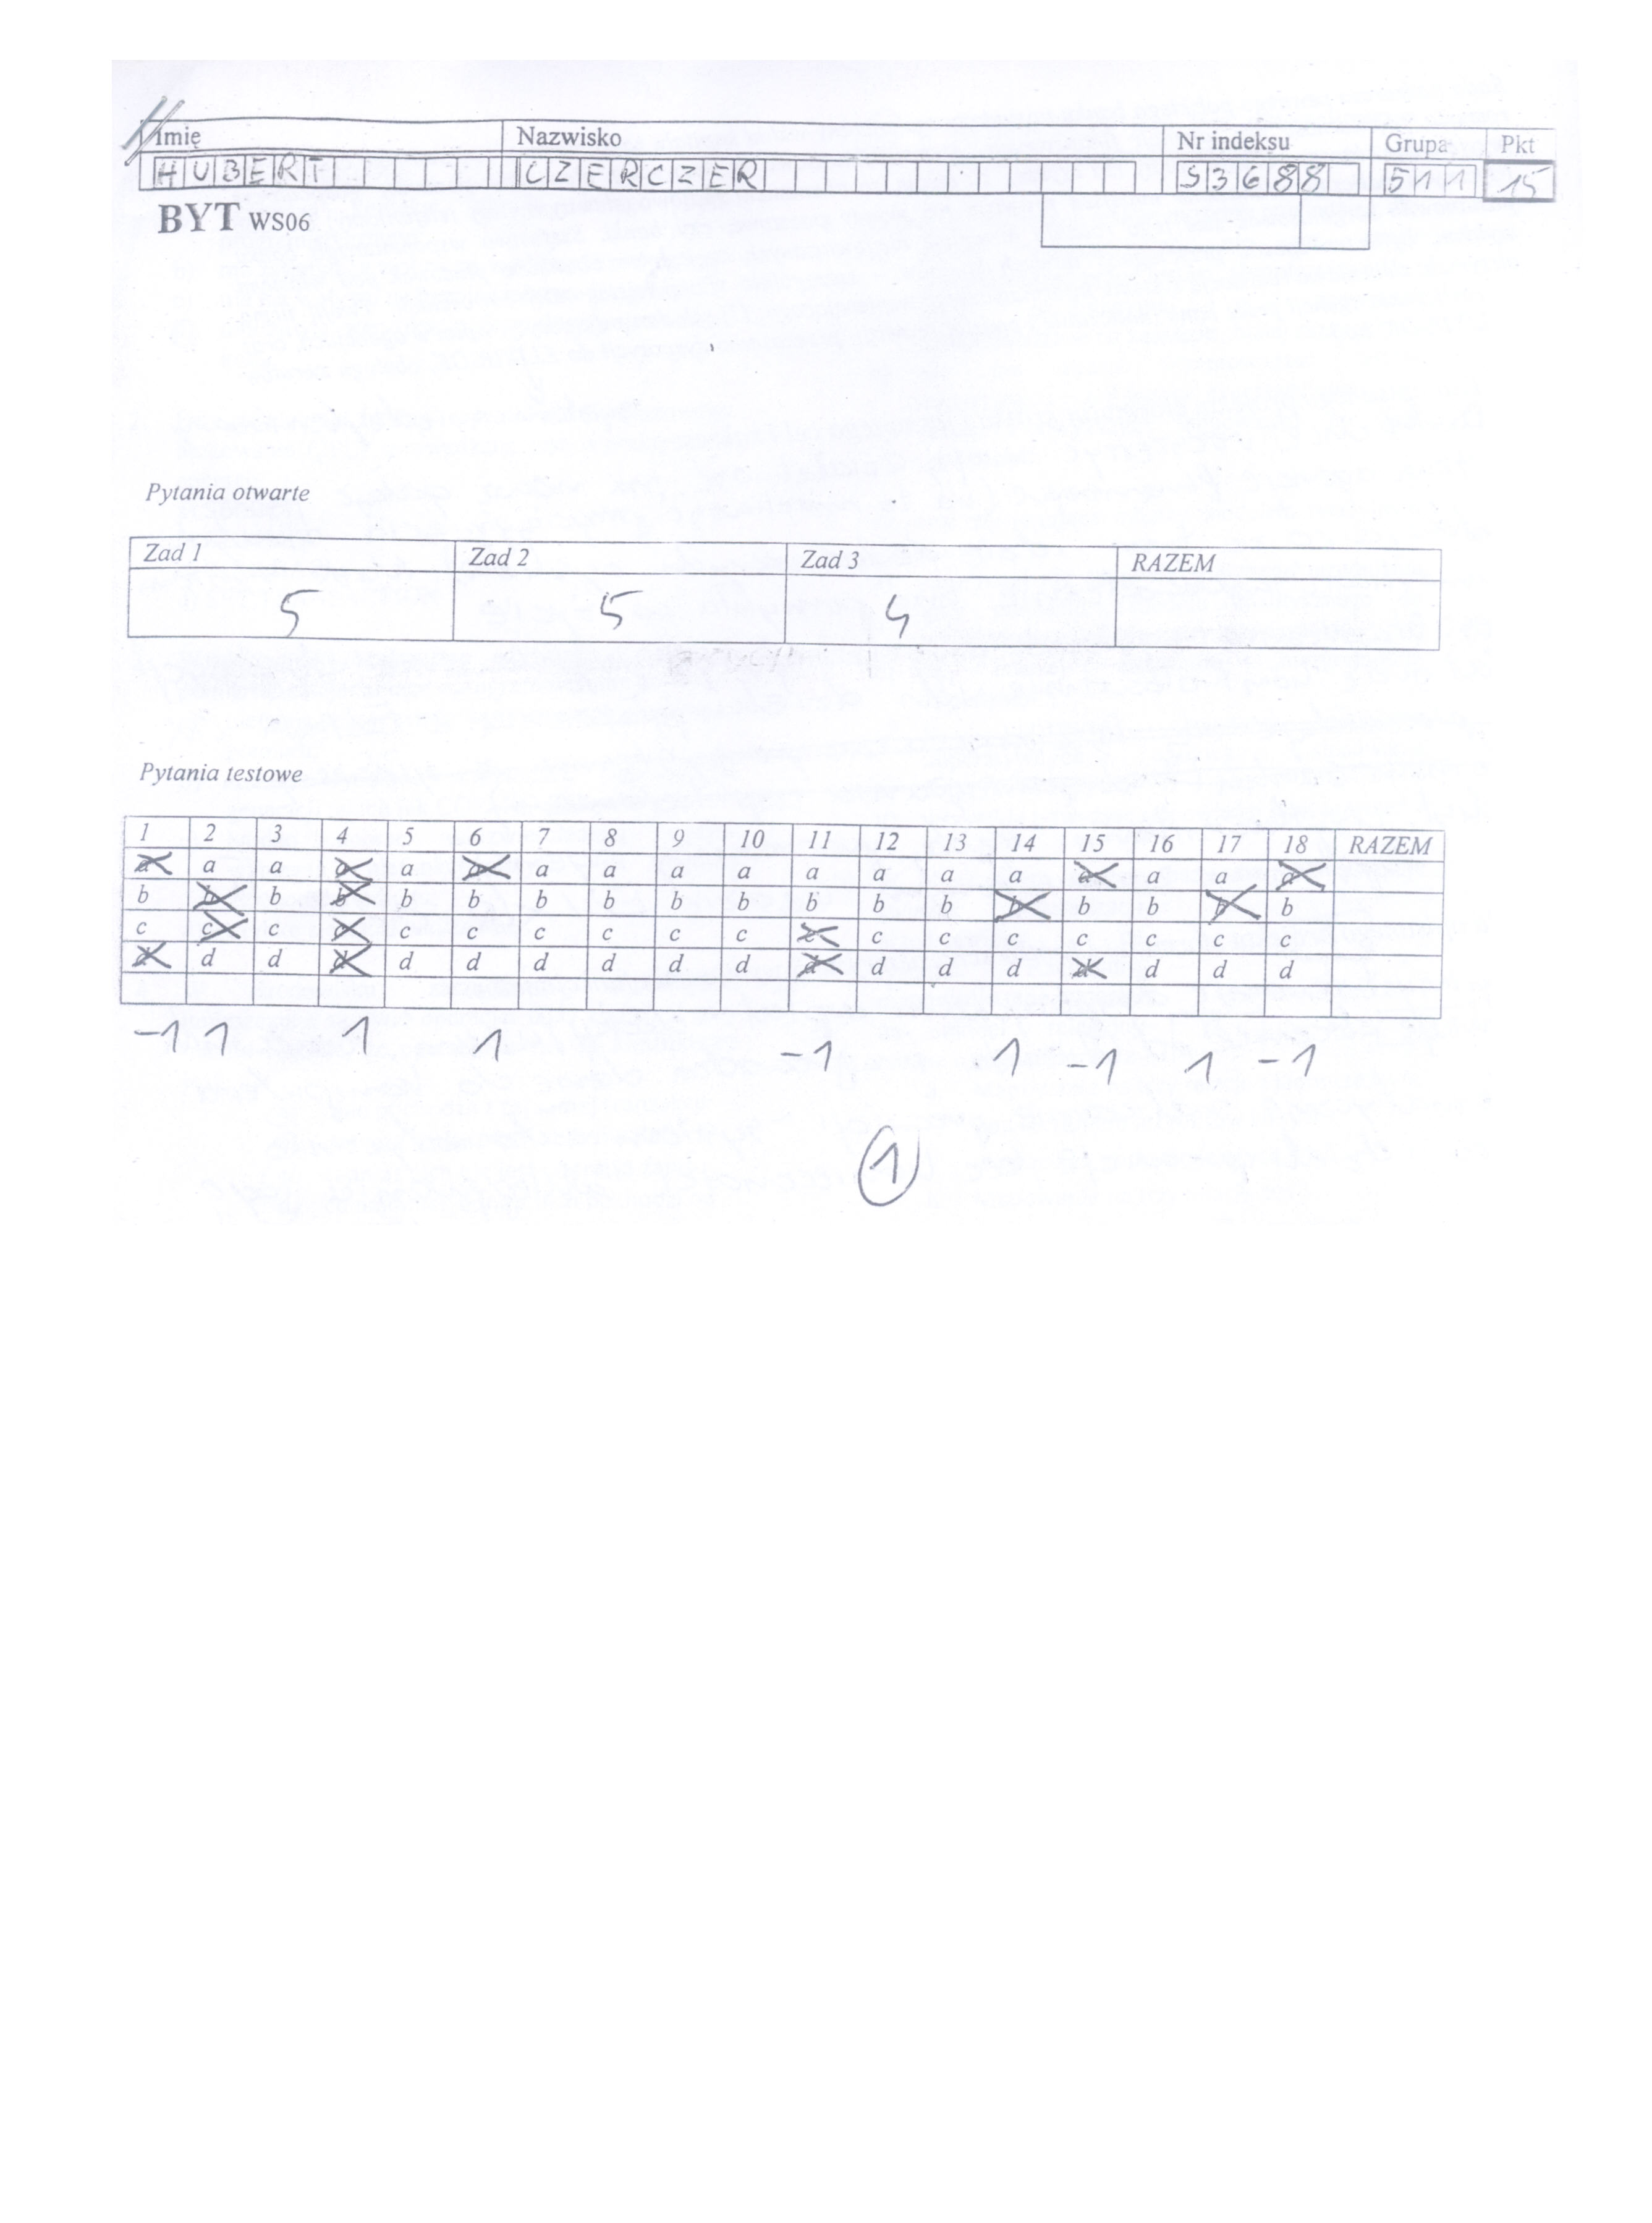 Imię Nazwisko Nr indeksu Grupa Pkt
HUBERT CZERCZER S3688 511 15
BYT WS06
Pytania otwarte
Zad 1 Zad 2 Zad 3 RAZEM
5 5 4
Pytania testowe
1 2 3 4 5 6 7 8 9 10 11 12 13 14 15 16 17 18 RAZEM
a a a a a a a a a a a a a a a a a a
b b b b b b b b b b b b b b b b b b
c c c c c c c c c c c c c c c c c c
d d d d d d d d d d d d d d d d d d
-1 1 1 1 -1 1 -1 1 -1
1